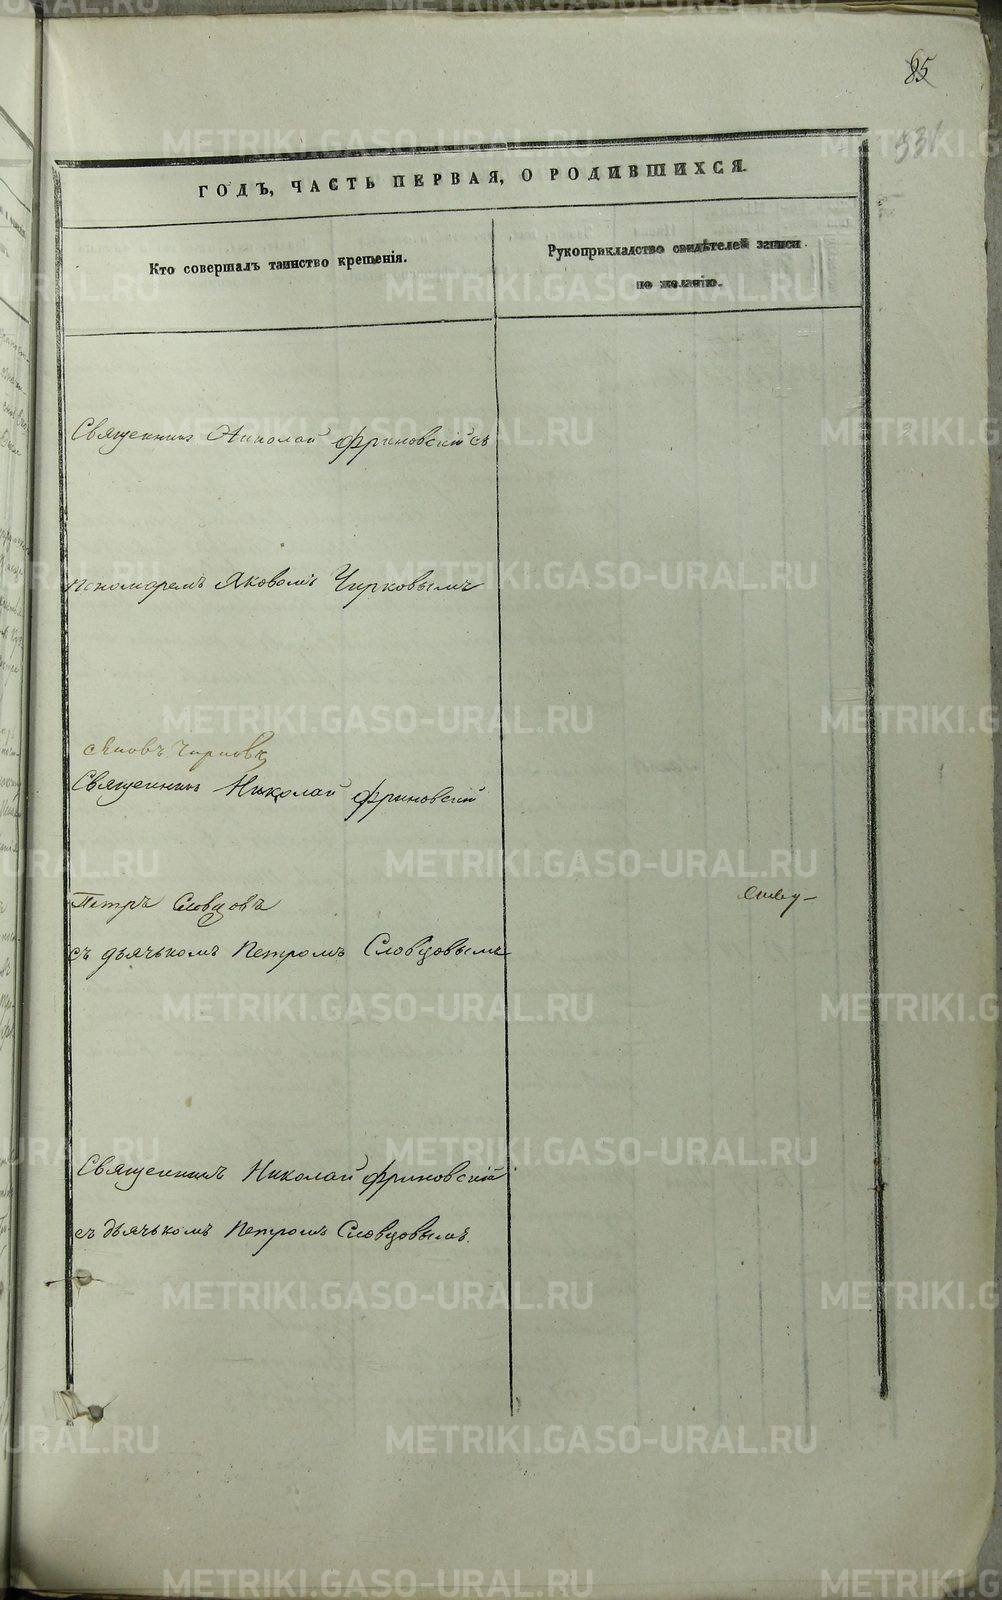 85
531
ГОДЪ, ЧАСТЬ ПЕРВАЯ, О РОДИВШИХСЯ.
Кто совершалъ таинство крещенія.
Рукоприкладство свидѣтелей записи
по желанію.
Священникъ Николай Фриновскій съ
пономаремъ Яковомъ Чирковымъ
Яковъ Чирковъ
Священникъ Николай Фриновскій
Петръ Словцовъ
съ дьячькомъ Петромъ Словцовымъ
Священникъ Николай Фриновскій
съ дьячькомъ Петромъ Словцовымъ.
METRIKI.GASO-URAL.RU